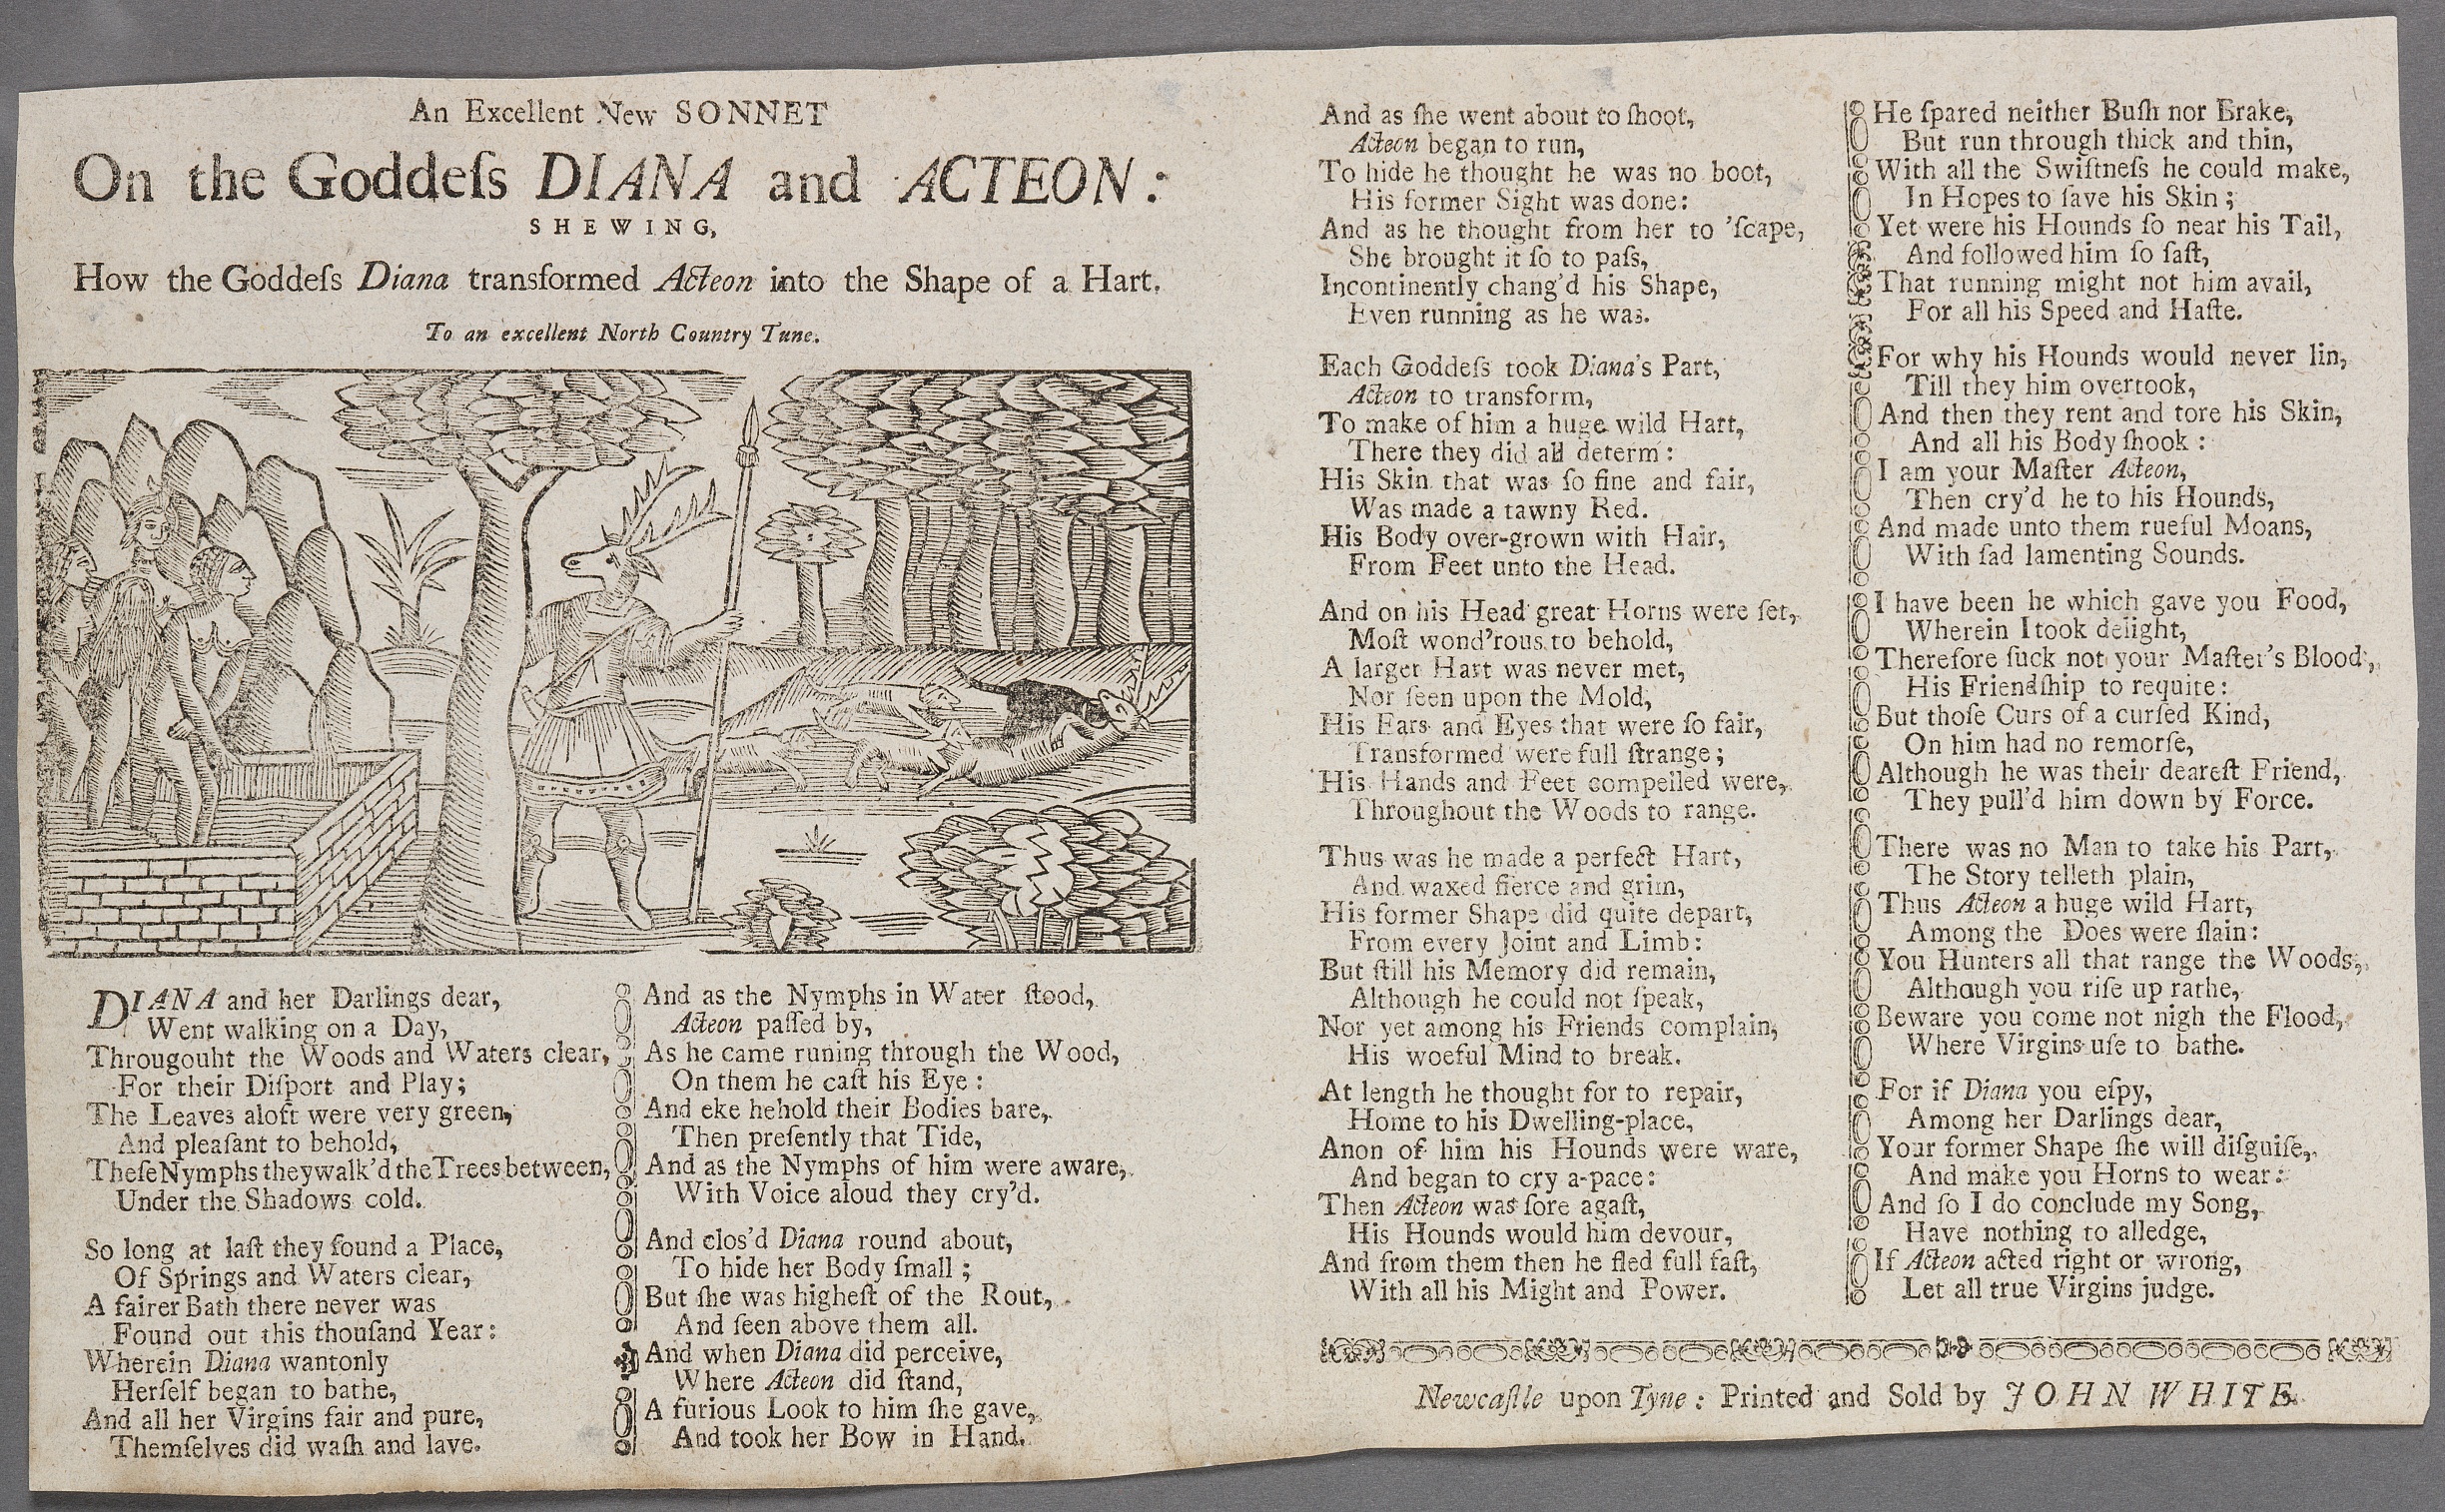 An Excellent New SONNET
On the Goddeſs DIANA and ACTEON:
SHEWING,
How the Goddeſs Diana transformed Acteon into the Shape of a Hart.
To an excellent North Country Tune.
DIANA and her Darlings dear,
Went walking on a Day,
Througouht the Woods and Waters clear,
For their Diſport and Play;
The Leaves aloft were very green,
And pleaſant to behold,
Theſe Nymphs they walk'd the Trees between,
Under the Shadows cold.
So long at laſt they found a Place,
Of Springs and Waters clear,
A fairer Bath there never was
Found out this thouſand Year:
Wherein Diana wantonly
Herſelf began to bathe,
And all her Virgins fair and pure,
Themſelves did waſh and lave.
And as the Nymphs in Water ſtood,
Acteon paſſed by,
As he came runing through the Wood,
On them he caſt his Eye:
And eke hehold their Bodies bare,
Then preſently that Tide,
And as the Nymphs of him were aware,
With Voice aloud they cry'd.
And clos'd Diana round about,
To hide her Body ſmall;
But ſhe was higheſt of the Rout,
And ſeen above them all.
And when Diana did perceive,
Where Acteon did ſtand,
A furious Look to him ſhe gave,
And took her Bow in Hand.
And as ſhe went about to ſhoot,
Acteon began to run,
To hide he thought he was no boot,
His former Sight was done:
And as he thought from her to 'ſcape,
She brought it ſo to paſs,
Incontinently chang'd his Shape,
Even running as he was.
Each Goddeſs took Diana's Part,
Acteon to transform,
To make of him a huge wild Hart,
There they did all determ:
His Skin that was ſo fine and fair,
Was made a tawny Red.
His Body over-grown with Hair,
From Feet unto the Head.
And on his Head great Horns were ſet,
Moſt wond'rous to behold,
A larger Hart was never met,
Nor ſeen upon the Mold,
His Ears and Eyes that were ſo fair,
Transformed were full ſtrange;
His Hands and Feet compelled were,
Throughout the Woods to range.
Thus was he made a perfect Hart,
And waxed fierce and grim,
His former Shape did quite depart,
From every Joint and Limb:
But ſtill his Memory did remain,
Although he could not ſpeak,
Nor yet among his Friends complain,
His woeful Mind to break.
At length he thought for to repair,
Home to his Dwelling-place,
Anon of him his Hounds were ware,
And began to cry a-pace:
Then Acteon was ſore agaſt,
His Hounds would him devour,
And from them then he fled full faſt,
With all his Might and Power.
He ſpared neither Buſh nor Brake,
But run through thick and thin,
With all the Swiftneſs he could make,
In Hopes to ſave his Skin;
Yet were his Hounds ſo near his Tail,
And followed him ſo faſt,
That running might not him avail,
For all his Speed and Haſte.
For why his Hounds would never lin,
Till they him overtook,
And then they rent and tore his Skin,
And all his Body ſhook:
I am your Maſter Acteon,
Then cry'd he to his Hounds,
And made unto them rueful Moans,
With ſad lamenting Sounds.
I have been he which gave you Food,
Wherein I took delight,
Therefore ſuck not your Maſter's Blood,
His Friendſhip to requite:
But thoſe Curs of a curſed Kind,
On him had no remorſe,
Although he was their deareſt Friend,
They pull'd him down by Force.
There was no Man to take his Part,
The Story telleth plain,
Thus Acteon a huge wild Hart,
Among the Does were ſlain:
You Hunters all that range the Woods,
Although you riſe up rathe,
Beware you come not nigh the Flood,
Where Virgins uſe to bathe.
For if Diana you eſpy,
Among her Darlings dear,
Your former Shape ſhe will diſguiſe,
And make you Horns to wear:
And ſo I do conclude my Song,
Have nothing to alledge,
If Acteon acted right or wrong,
Let all true Virgins judge.
Newcaſtle upon Tyne: Printed and Sold by JOHN WHITE.